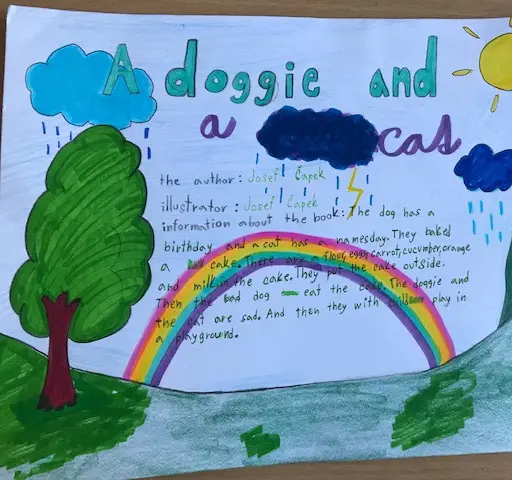 A doggie and
a cas
the author: Josef Čapek
illustrator: Josef Čapek
information about the book: The dog has a
birthday and a cat has a namesday. They baked
a cake. There are a flour, egg, carrot, cucumber, orange
and milk in the cake. They put the cake outside.
Then the bad dog eat the cake. The doggie and
the cat are sad. And then they with play in
a playground.